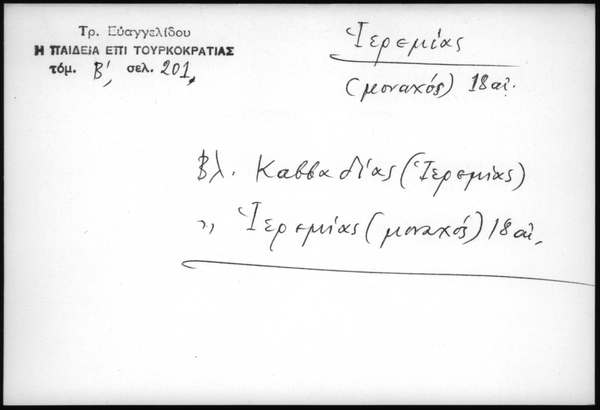 Τρ. Εὐαγγελίδου
Η ΠΑΙΔΕΙΑ ΕΠΙ ΤΟΥΡΚΟΚΡΑΤΙΑΣ
τόμ. Β', σελ. 201,
Ἱερεμίας
(μοναχός) 18 αἰ.
Βλ. Καββαδίας (Ἱερεμίας)
,, Ἱερεμίας (μοναχός) 18 αἰ,